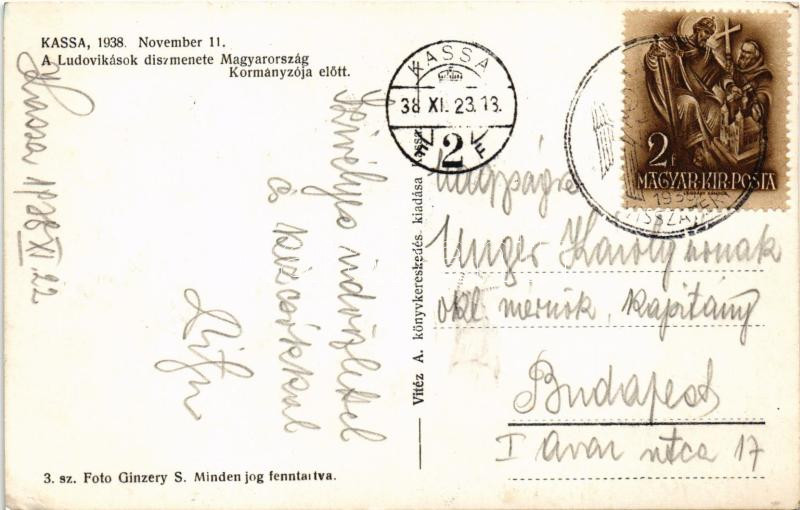 KASSA, 1938. November 11.
A Ludovikások diszmenete Magyarország
Kormányzója előtt.
Kassa 1938 XI. 22
üdvözlettel
és kézcsókkal
3. sz. Foto Ginzery S. Minden jog fenntartva.
Vitéz A. könyvkereskedés kiadása Kassa
KASSA
38 XI. 23. 13.
2
F
2f
MAGYAR·KIR·POSTA
Unger Károly
okl. mérnök, kapitány
Budapest
I Avar utca 17